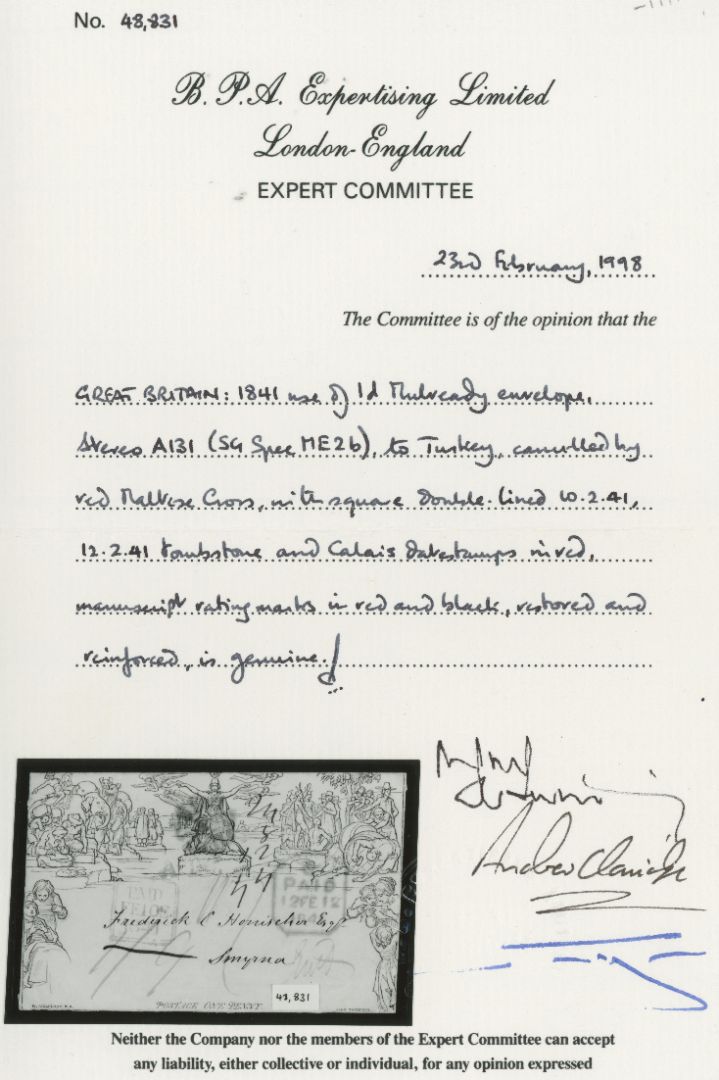 No. 48,831
B.P.A. Expertising Limited
London-England
EXPERT COMMITTEE
23rd February, 1998
The Committee is of the opinion that the
GREAT BRITAIN: 1841 use of 1d Mulready envelope,
Stereo A131 (SG Spec ME2b), to Turkey, cancelled by
red Maltese Cross, with square double-lined 10.2.41,
12.2.41 tombstone and Calais datestamps in red,
manuscript rating marks in red and black, restored and
reinforced, is genuine.
PAID
PAID
12FE12
Frederick C Esqr
Smyrna
POSTAGE ONE PENNY
48,831
Andrew
Neither the Company nor the members of the Expert Committee can accept
any liability, either collective or individual, for any opinion expressed